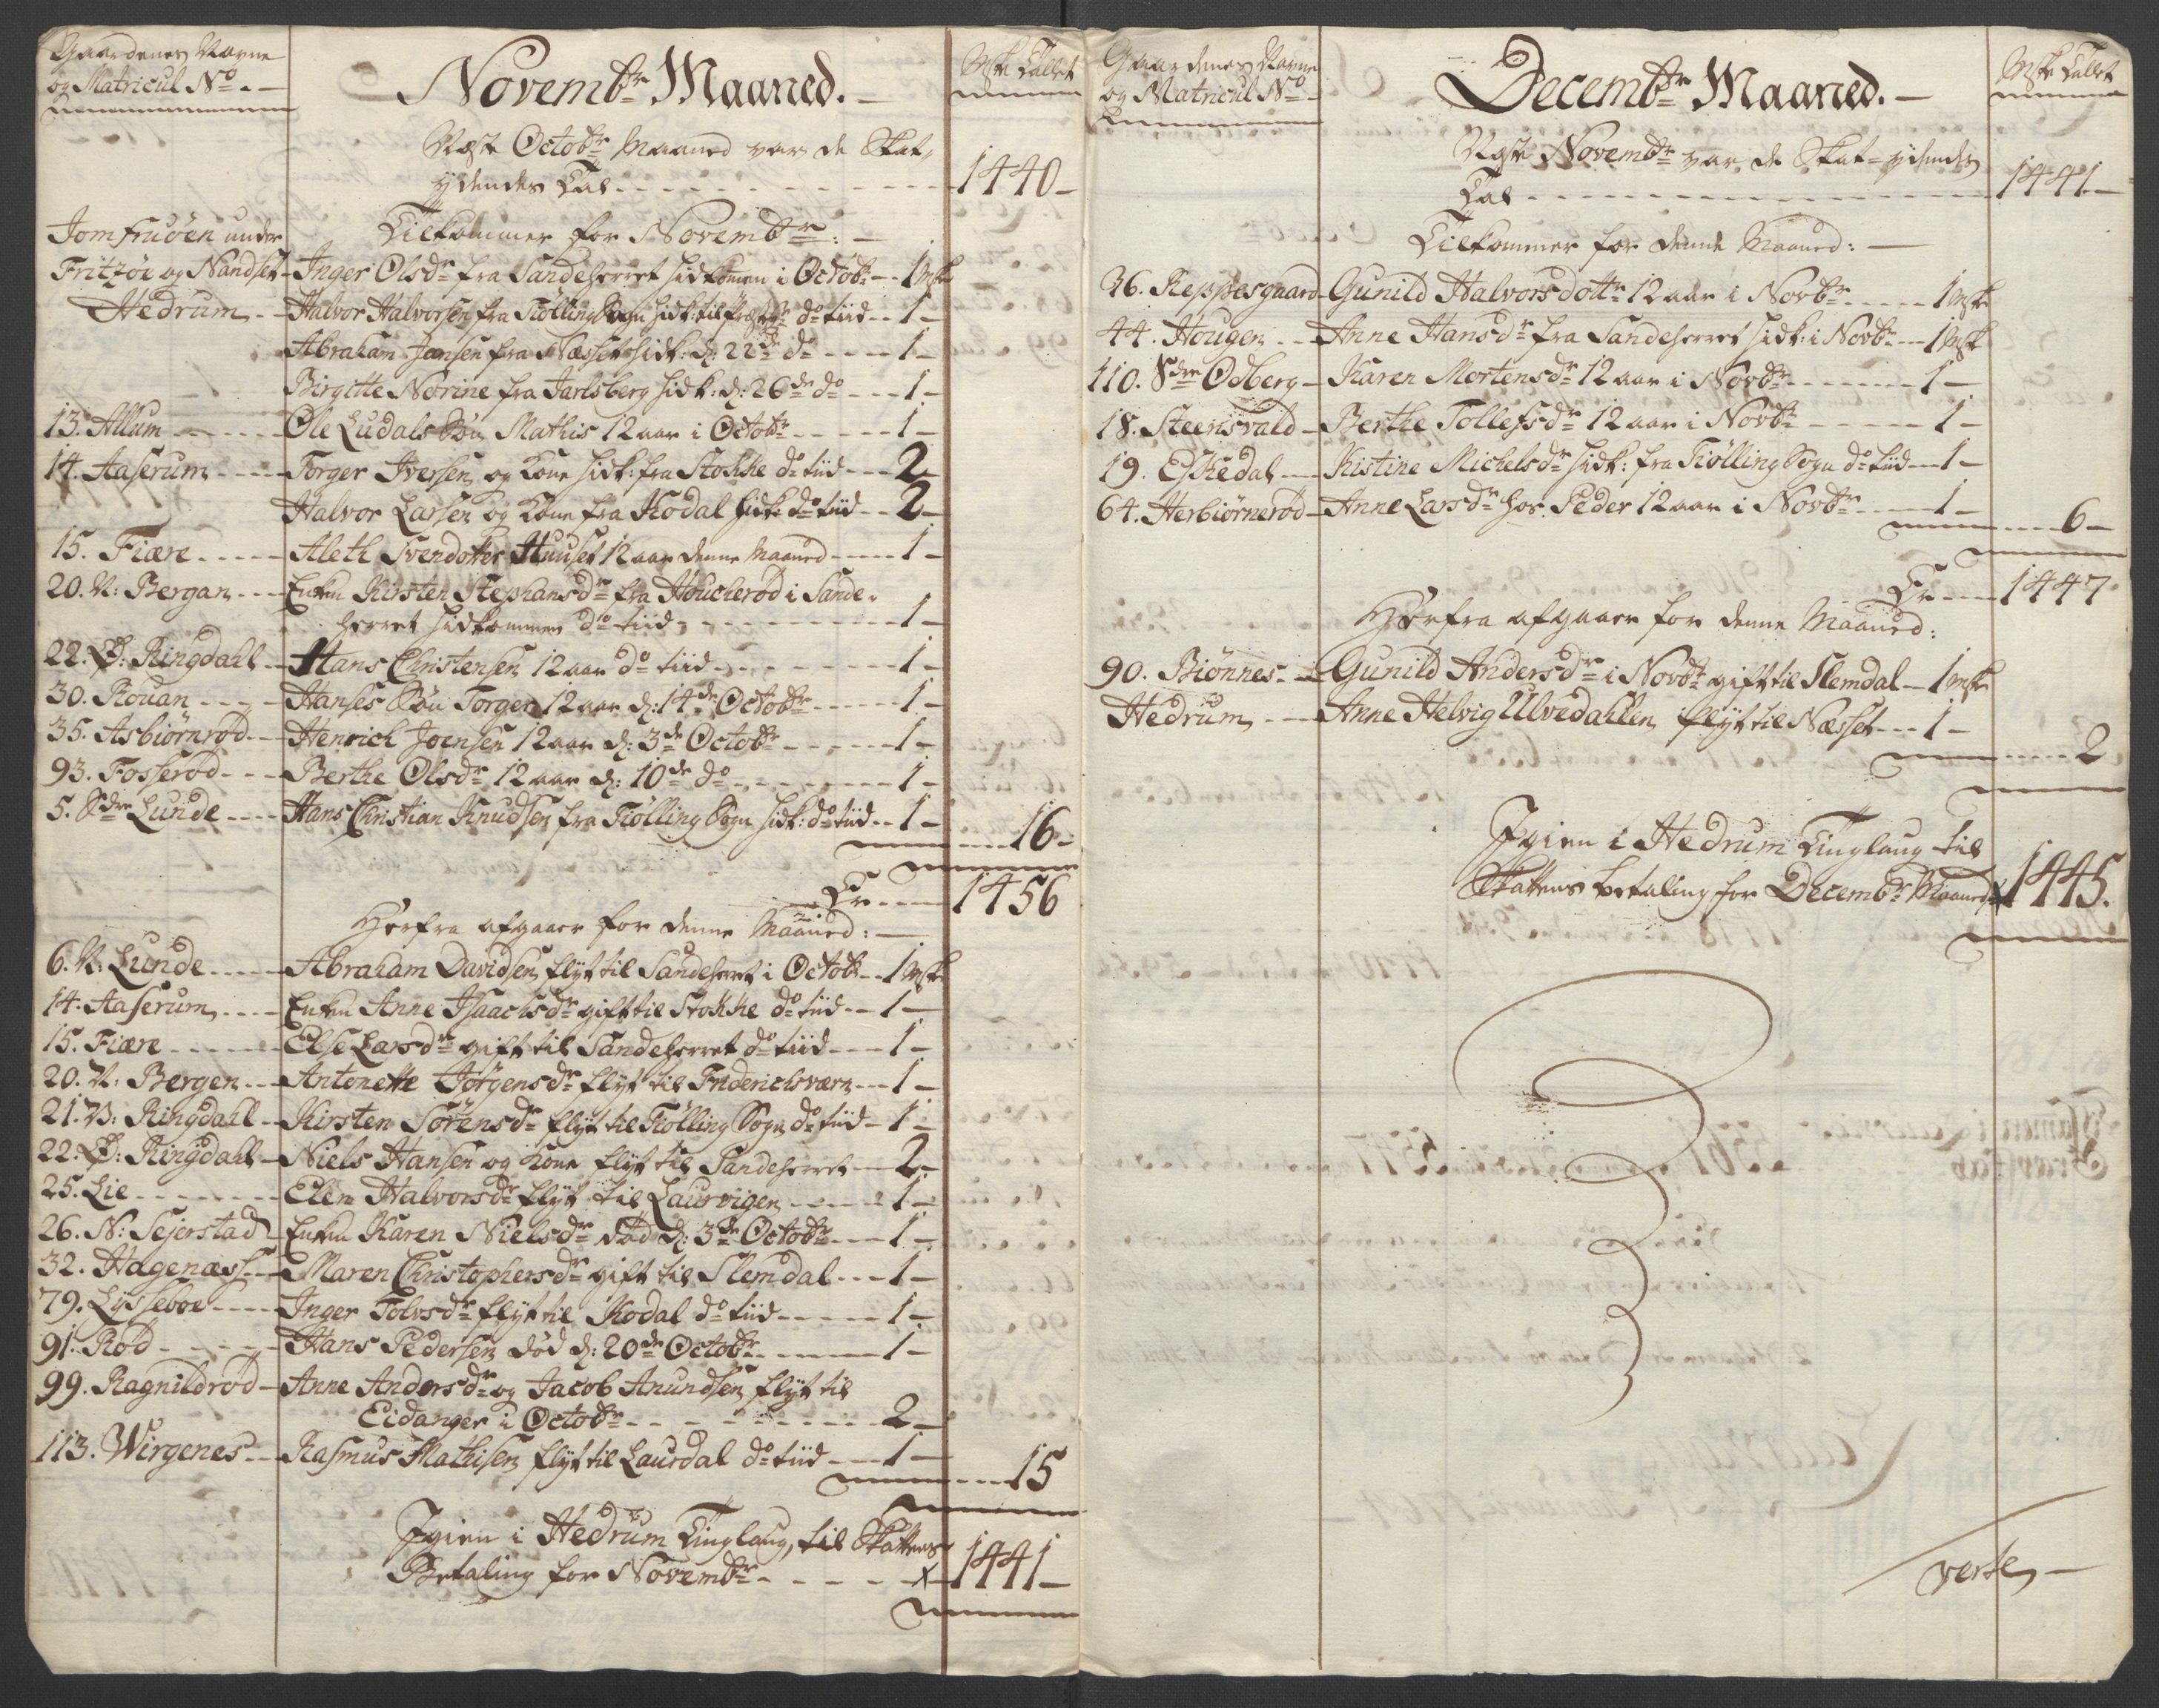 Gaardenes Navne
og Matricul No. —
Novembr. Maaned. —
Mske Tallet
Næste Octobr. Maaned var de Skat,
ydendes Tal - - - 1440 —
Tilkommer for Novembr: —
Jomfruöen under
Fritzöe og Nandset - Inger Olsdr fra Sandeherret hidkommen i Octobr - - 1 Mske
Hedrum - - Halvor Halvorsen fra Tiölling Sogn hidk: til do tiid - - 1 —
Abraham Jensen fra Næsset hidk: d: 22de do - - - 1 —
Birgitte Norine fra Jarlsberg hidk: d: 26de do - - - 1 —
13. Allum - - - Ole Ludals Søn Mathis 12 aar i Octobr - - - 1 —
14. Aaserum - - - Torger Iversen og Kone hidk: fra Stokke do tiid - - - 2 —
Halvor Larsen og Kone fra Kodal hidk: do tiid - - 2 —
15. Fiære - - - Aleth Svendotter Huuset 12 aar denne Maaned - - - 1 —
20. N: Bergan - - - Enken Kirsten Stephansdr fra Houcherød i Sande-
herret hidkommen do tiid - - - 1 —
22. Ø: Ringdahl - - Hans Christensen 12 aar do tiid - - - 1 —
30. Kouan - - - Hanses Søn Torger 12 aar d: 14de Octobr - - - 1 —
35. Asbiörnröd - - Henrich Joensen 12 aar d: 3de Octobr - - - 1 —
93. Fosseröd - - - Berthe Olsdr 12 aar d: 10de do - - - 1 —
5. Sdre Lunde - - - Hans Christian Knudsen fra Tiölling Sogn hidk: do tiid - - 1 — 16 —
Er - - - 1456
Herfra afgaaer for denne Maaned: —
6. N: Lunde - - - Abraham Davidsen flyt til Sandeherret i Octobr - - 1 Mske
14. Aaserum - - - Enken Anne Isaachsdr gift til Stokke do tiid - - 1 —
15. Fiære - - - Else Larsdr gift til Sandeherret do tiid - - - 1 —
20. N: Bergen - - Antonette Jörgensdr flyt til Friderichsværn - - - 1 —
21. V: Ringdahl - - Kirsten Sörensdr flyt til Tiölling Sogn do tiid - 1 —
22. Ø: Ringdahl - Niels Hansen og Kone flyt til Sandeherret - - 2 —
25. Lie - - - Elen Halvorsdr flyt til Laurvigen - - - 1 —
26. N: Sejerstad - Enken Karen Nielsdr død d: 3de Octobr - - - 1 —
32. Hagenæss - - Maren Christophersdr gift til Slemdal - - - 1 —
79. Lysseboe - - - Inger Tolvsdr flyt til Kodal do tiid - - - 1 —
91. Röd - - - Hans Pedersen död d: 20de Octobr - - - 1 —
99. Ragnildröd - Anne Andersdr og Jacob Anundsen flyt til
Eidanger i Octobr - - - 2 —
113. Wirgenes - - Rasmus Mathisen flyt til Laurdal do tiid - - - 1 — 15
Igien i Hedrum Tinglaug, til Skattens
Betaling for Novembr - - - x 1441 —
Gaardenes Navne
og Matricul No —
Decembr Maaned. —
Mske Tallet
Næste Novembr var de Skat=ydendes
Tal - - - 1441 —
Tilkommer for denne Maaned: —
36. Reppesgaard - Gunild Halvorsdottr 12 aar i Novbr - - - 1 Mske
44. Hougen - - Anne Hansdr fra Sandeherret hidk: i Novbr - - 1 Mske
110. Sdre Odberg - Karen Mortensdr 12 aar i Novbr - - - 1 —
18. Steensvald - Berthe Tollefsdr 12 aar i Novbr - - - 1 —
19. Eskedal - - Kistine Michelsdr hidk: fra Tiölling Sogn do tiid - - 1 —
64. Herbiörneröd - Anne Larsdr hos Peder 12 aar i Novbr - - - 1 — 6 —
Er - - - 1447
Herfra afgaaer for denne Maaned:
90. Biönnes - - Gunild Andersdr i Novbr gift til Slemdal - 1 Mske
Hedrum - - - Anne Helvig Ulvedahlen flyt til Næsset - - - 1 — 2
Igien i Hedrum Tinglaug til
Skattens betaling for Decembr Maaned x 1445.
verte —